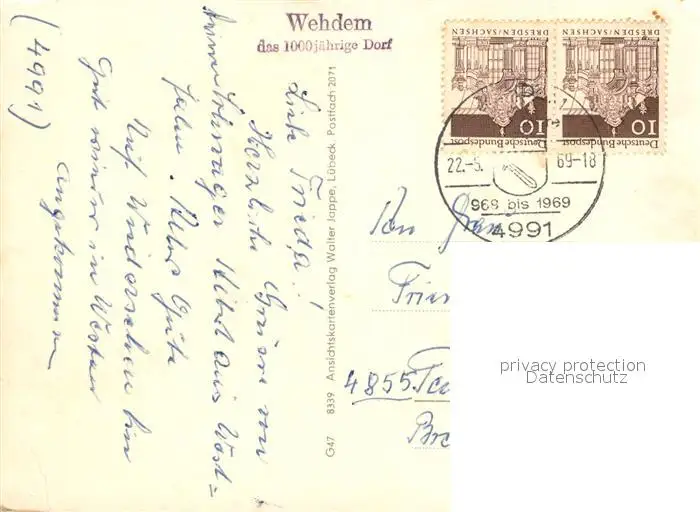 Wehdem
das 1000jährige Dorf
DRESDEN/SACHSEN
DRESDEN/SACHSEN
10
10
Deutsche Bundespost
Deutsche Bundespost
22.-5.
69-18
968 bis 1969
4991
(4991)
Liebe Frieda!
Herzliche Grüße von
meine Schwager Hebel aus West=
falen. Alles Gute
Auf Wiedersehen bin
Gut wieder in Westen
angekommen
G47 8339 Ansichtskartenverlag Walter Jappe, Lübeck, Postfach 2071
4855
privacy protection
Datenschutz